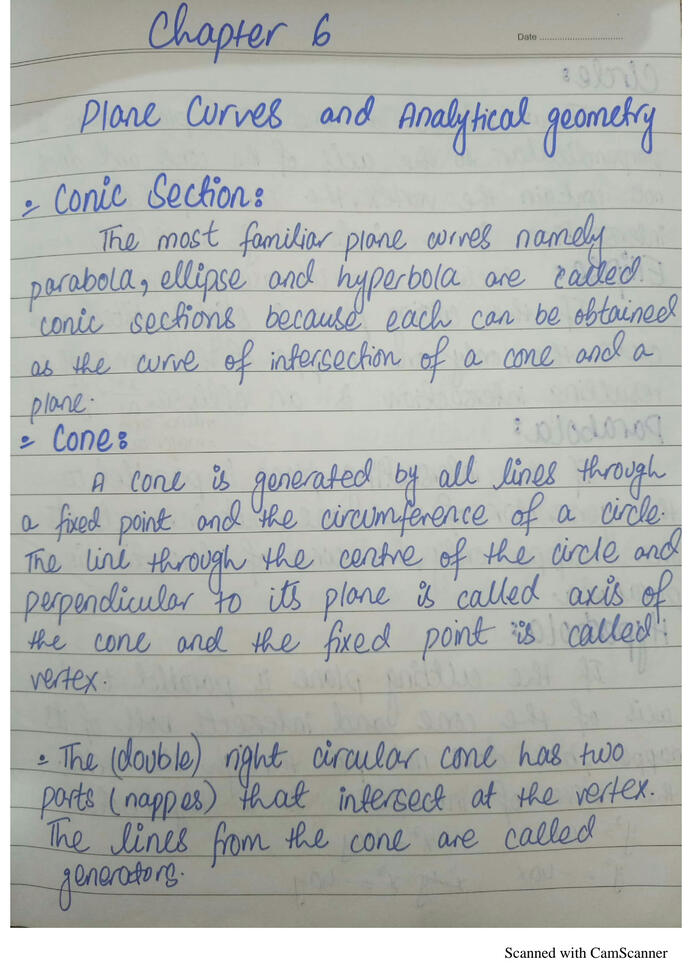 Chapter 6
Date
Plane Curves and Analytical geometry
= Conic Section:
The most familiar plane curves namely
parabola, ellipse and hyperbola are called
conic sections because each can be obtained
as the curve of intersection of a cone and a
plane.
= Cone:
A cone is generated by all lines through
a fixed point and the circumference of a circle.
The line through the centre of the circle and
perpendicular to its plane is called axis of
the cone and the fixed point is called
vertex.
= The (double) right circular cone has two
parts (nappes) that intersect at the vertex.
The lines from the cone are called
generators.
Scanned with CamScanner